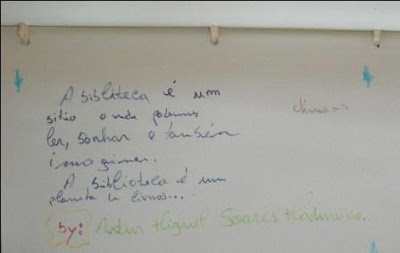 A bibliteca é um
sitio onde podemos
ler, sonhar e também
imaginar.
A biblioteca é um
planeta de livros...
by: Miguel Soares